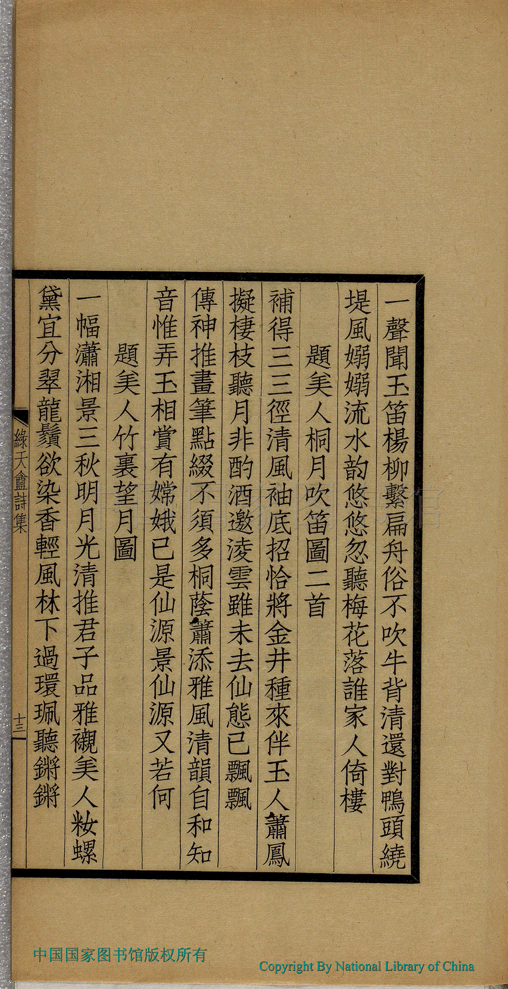 一聲聞玉笛楊柳繫扁舟俗不吹牛背清還對鴨頭繞
堤風嫋嫋流水韵悠悠忽聽梅花落誰家人倚樓
題美人桐月吹笛圖二首
補得三三徑清風袖底招恰將金井種來伴玉人簫鳳
擬棲枝聽月非酌酒邀淩雲雖未去仙態已飄飄
傳神推畫筆點綴不須多桐蔭簫添雅風清韻自和知
音惟弄玉相賞有嫦娥已是仙源景仙源又若何
題美人竹裏望月圖
一幅瀟湘景三秋明月光清推君子品雅襯美人妝螺
黛宜分翠龍鬚欲染香輕風林下過環珮聽鏘鏘
綠天盦詩集
十三
中国国家图书馆版权所有
Copyright By National Library of China